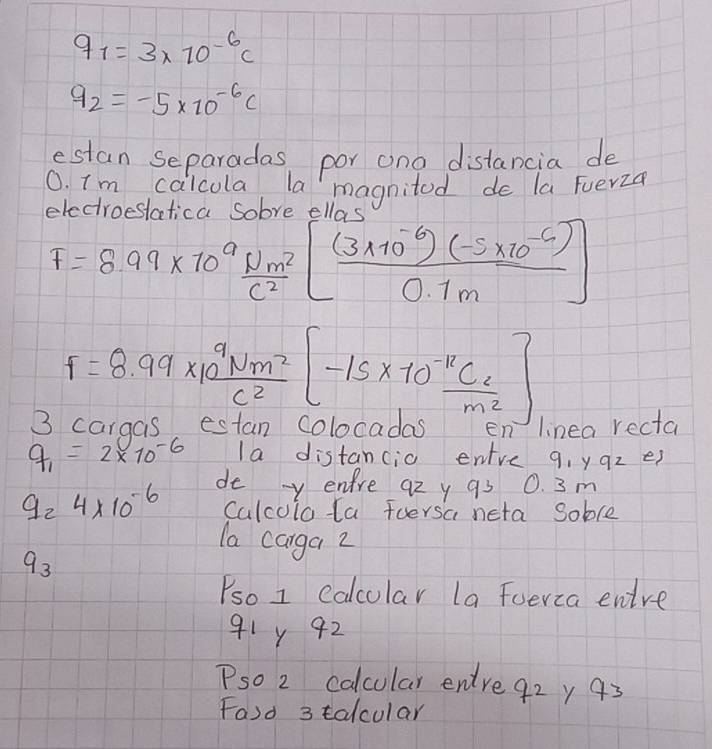 q1 = 3 x 10^-6 C
q2 = -5 x 10^-6 C
estan separadas por una distancia de
0.1m calcula la magnitud de la Fuerza
electroestatica sobre ellas
F = 8.99 x 10^9 Nm^2/C^2 [(3x10^-6) (-5x10^-6) / 0.1m]
F = 8.99 x10^9 Nm^2/C^2 [-15 x 10^-12 C2/m^2]
3 cargas estan colocadas en linea recta
q1 = 2x10^-6 la distancia entre q1 y q2 es
de y entre q2 y q3 0.3m
q2 4x10^-6 Calcula la fuersa neta Sobre
la carga 2
q3
Pso 1 calcular la Fuerza entre
q1 y q2
Pso 2 calcular entre q2 y q3
3 calcular